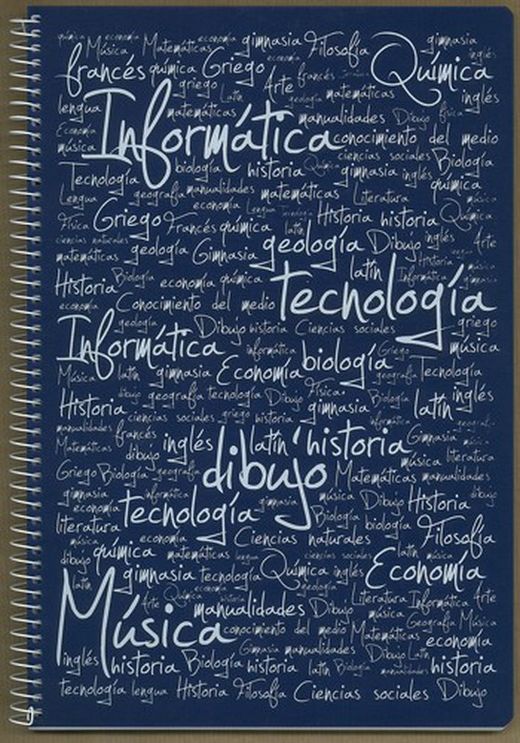 química Música Matemáticas economía gimnasia Filosofía gimnasia inglés
francés química Griego economía francés Química
griego Arte matemáticas inglés
lengua Latín geología
matemáticas manualidades Dibujo física
Economía Informática conocimiento del medio
música ciencias sociales Biología
Tecnología biología historia Química gimnasia inglés química
Lengua geografía manualidades matemáticas Literatura
economía Lengua Historia historia Química
Física Griego Francés química latín
ciencias naturales geología Dibujo inglés Arte
matemáticas geología Gimnasia Historia música
Historia Biología economía química latín Informática
economía Conocimiento del medio tecnología
geología Dibujo historia Ciencias sociales griego
Informática informática biología Griego música
Música latín gimnasia Economía geografía Tecnología
dibujo geografía tecnología Dibujo Física inglés
Historia ciencias sociales griego historia gimnasia latín
música francés Gimnasia
Matemáticas dibujo inglés latín historia música literatura
Griego Biología geografía dibujo Matemáticas manualidades
gimnasia informática gimnasia música Dibujo Historia dibujo
economía tecnología Biología biología
literatura economía Ciencias naturales Filosofía
música química matemáticas lengua ciencias sociales latín música
dibujo gimnasia tecnología Química inglés Economía
latín geología
Arte Economía historia Literatura Informática Arte
Música manualidades Dibujo música economía
conocimiento del medio Matemáticas
inglés Gimnasia manualidades dibujo música
historia Biología historia latín Biología manualidades historia
tecnología lengua Historia Filosofía Ciencias sociales Dibujo